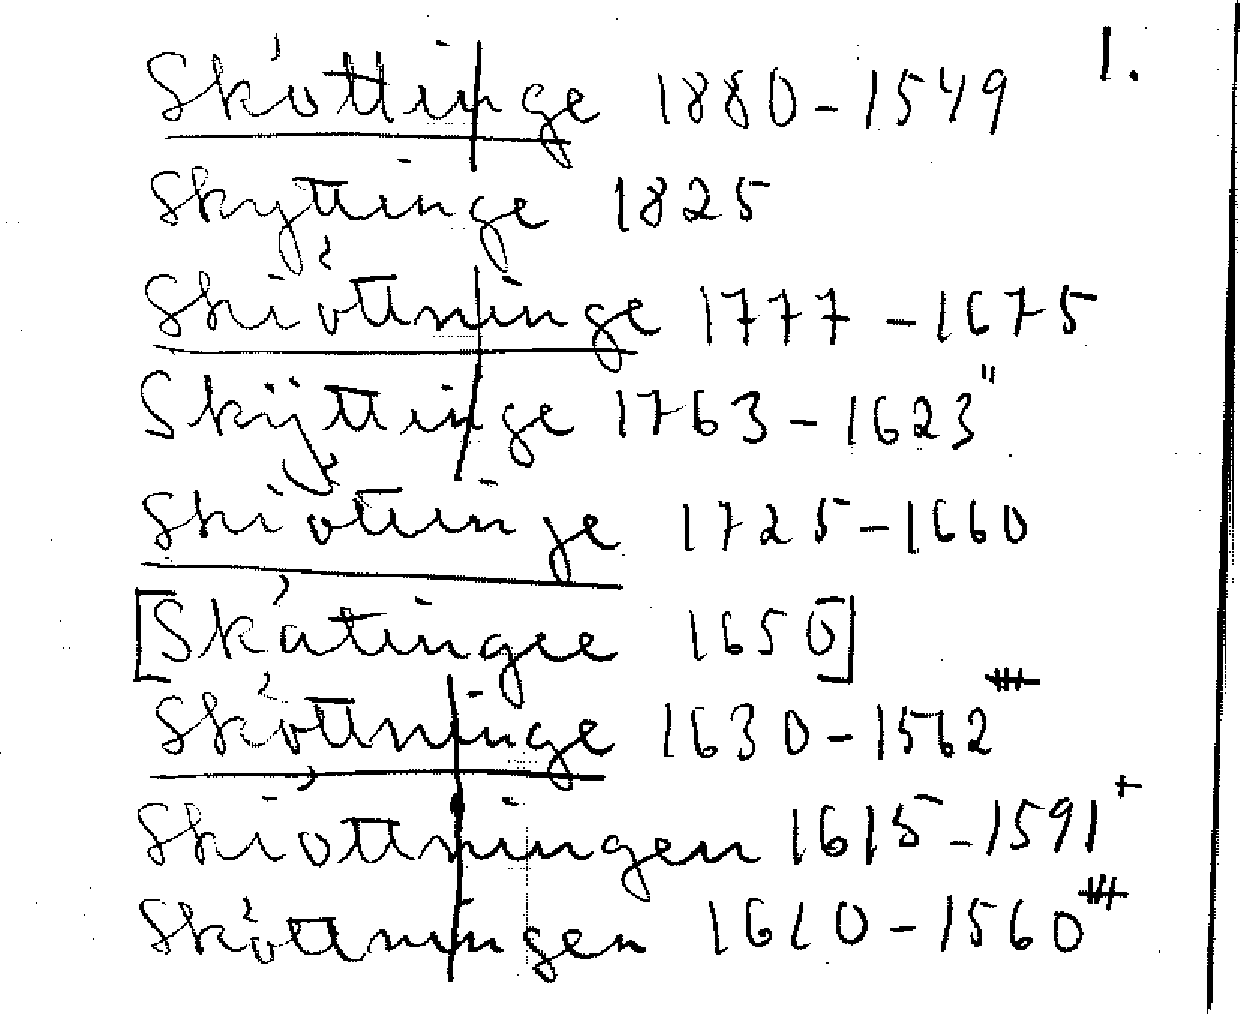 Sköttinge 1880-1549 1.
Skyttinge 1825
Skiöttninge 1777-1675
Skÿttinge 1763-1623"
Skiöttinge 1725-1660
[Skåtingee 1650]
Sköttninge 1630-1562
Skiöttningen 1615-1591+
Sköttningen 1610-1560